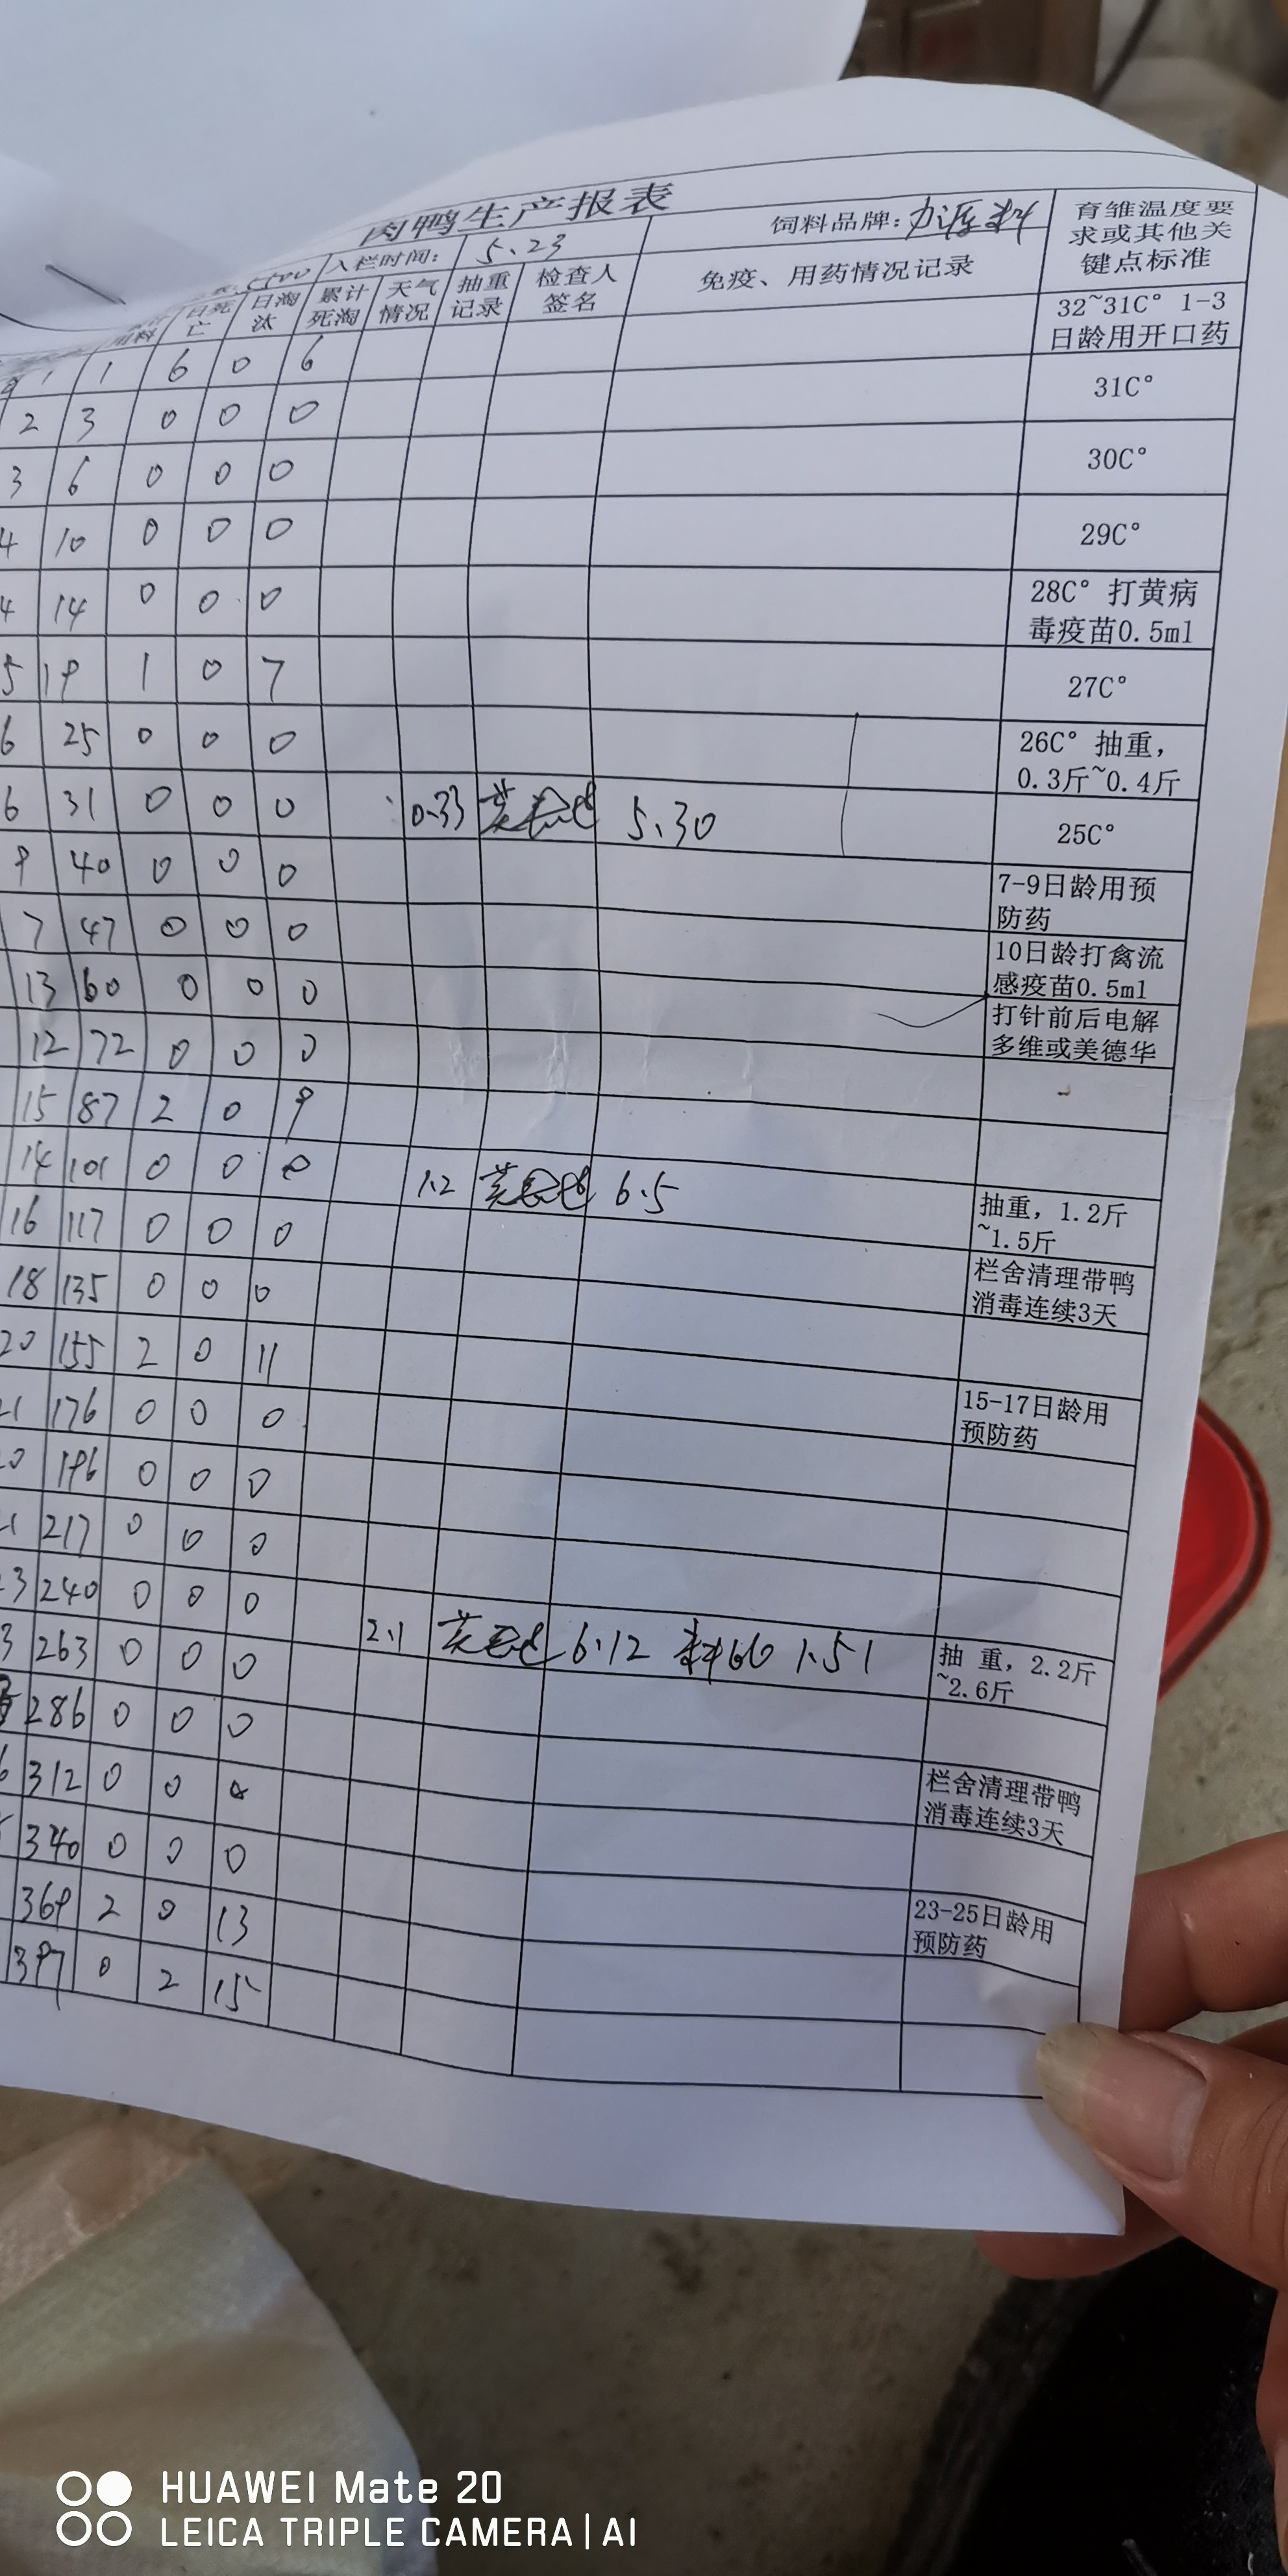 肉鸭生产报表
入栏时间: 5.23 饲料品牌:
用料 日死亡 日淘汰 累计死淘 天气情况 抽重记录 检查人签名 免疫、用药情况记录 育雏温度要求或其他关键点标准
1 1 6 0 6 32~31C° 1-3日龄用开口药
2 3 0 0 0 31C°
3 6 0 0 0 30C°
4 10 0 0 0 29C°
4 14 0 0 0 28C° 打黄病毒疫苗0.5ml
5 19 1 0 7 27C°
6 25 0 0 0 26C° 抽重，0.3斤~0.4斤
6 31 0 0 0 0.33 5.30 25C°
9 40 0 0 0 7-9日龄用预防药
7 47 0 0 0 10日龄打禽流感疫苗0.5ml
13 60 0 0 0 打针前后电解多维或美德华
12 72 0 0 0
15 87 2 0 9
14 101 0 0 0 1.2 6.5 抽重，1.2斤~1.5斤
16 117 0 0 0 栏舍清理带鸭消毒连续3天
18 135 0 0 0
20 155 2 0 11 15-17日龄用预防药
21 176 0 0 0
20 196 0 0 0
21 217 0 0 0
23 240 0 0 0
3 263 0 0 0 2.1 6.12 料 1.51 抽 重，2.2斤~2.6斤
286 0 0 0
6 312 0 0 0 栏舍清理带鸭消毒连续3天
340 0 0 0
369 2 0 13 23-25日龄用预防药
397 0 2 15
HUAWEI Mate 20
LEICA TRIPLE CAMERA | AI